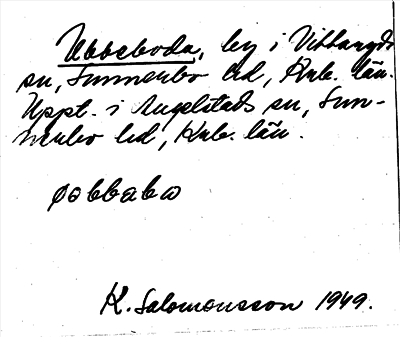 Ubbeboda, by i Vittaryds
sn, Sunnerbo hd, Krb. län.
Uppt. i Angelstads sn, Sun-
nerbo hd, Krb. län.
øobbabω
K. Salomonsson 1949.